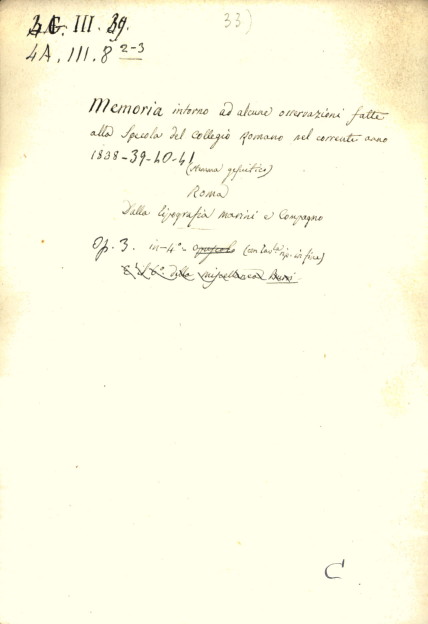 4G. III. 39.
33)
4A. III. 8 2-3
Memoria intorno ad alcune osservazioni fatte
alla Specola del Collegio Romano nel corrente anno
1838-39-40-41
(Stemma gesuitico)
Roma
Dalla tipografia marini e Compagno
Op. 3. in-4° opuscolo (con tav. lit. in fine)
È il 6° della miscellanea
C